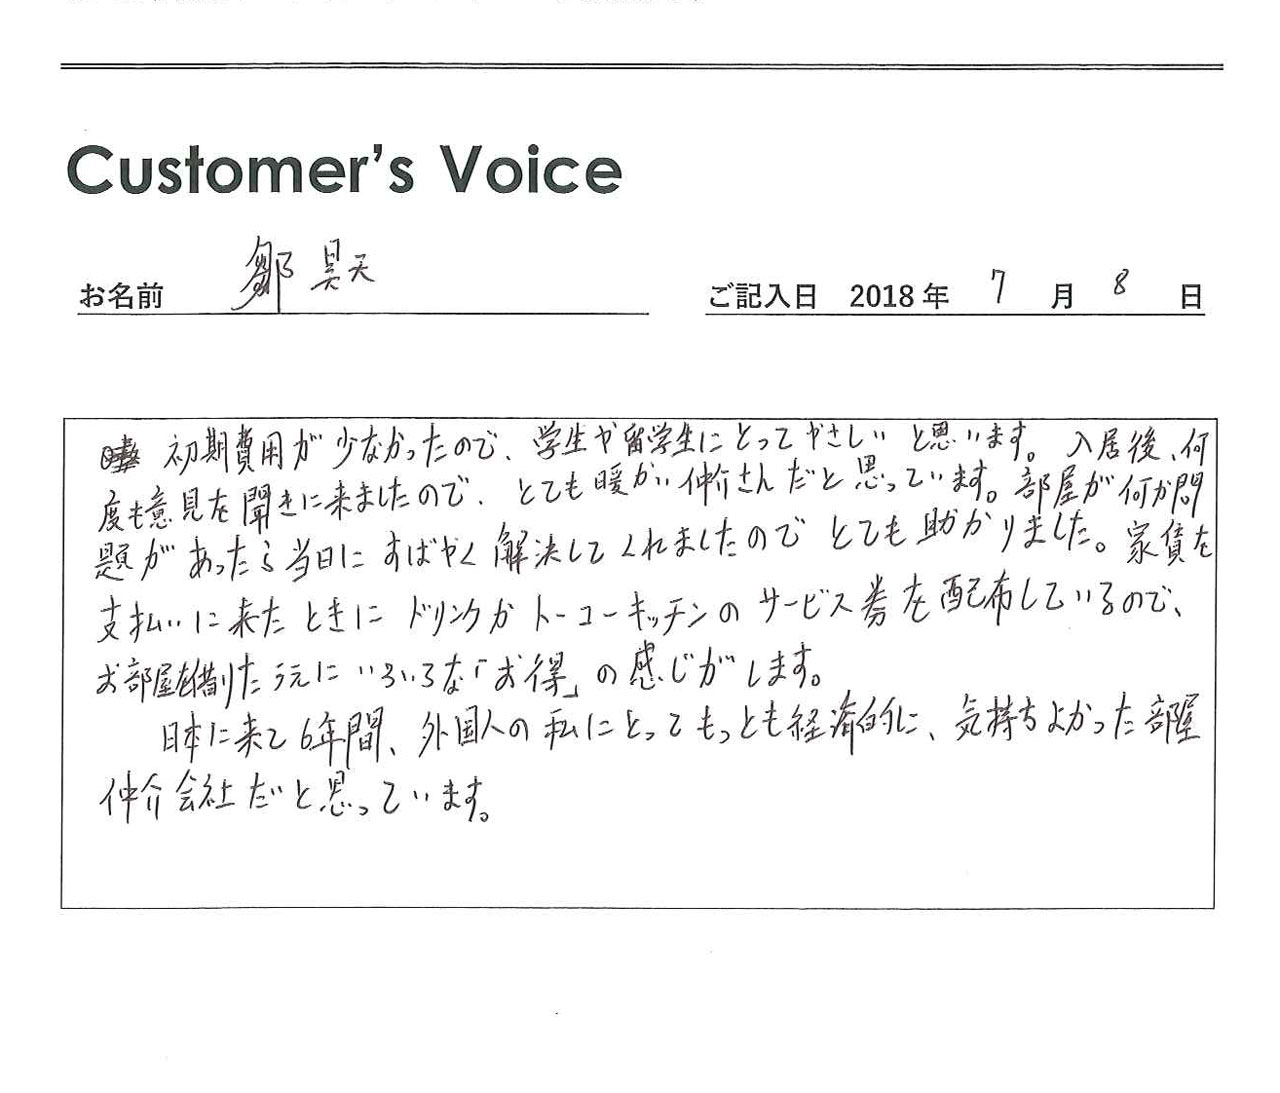 Customer's Voice
お名前 鄒昊天 ご記入日 2018年 7月 8日
初期費用が少なかったので、学生や留学生にとってやさしいと思います。入居後、何
度も意見を聞きに来ましたので、とても暖かい仲介さんだと思っています。部屋が何か問
題があったら当日にすばやく解決してくれましたのでとても助かりました。家賃を
支払いに来たときにドリンクかトーコーキッチンのサービス券を配布しているので、
お部屋を借りた以元にいろいろな「お得」の感じがします。
日本に来て6年間、外国人の私にとってもっとも経済的に、気持ちよかった部屋
仲介会社だと思っています。